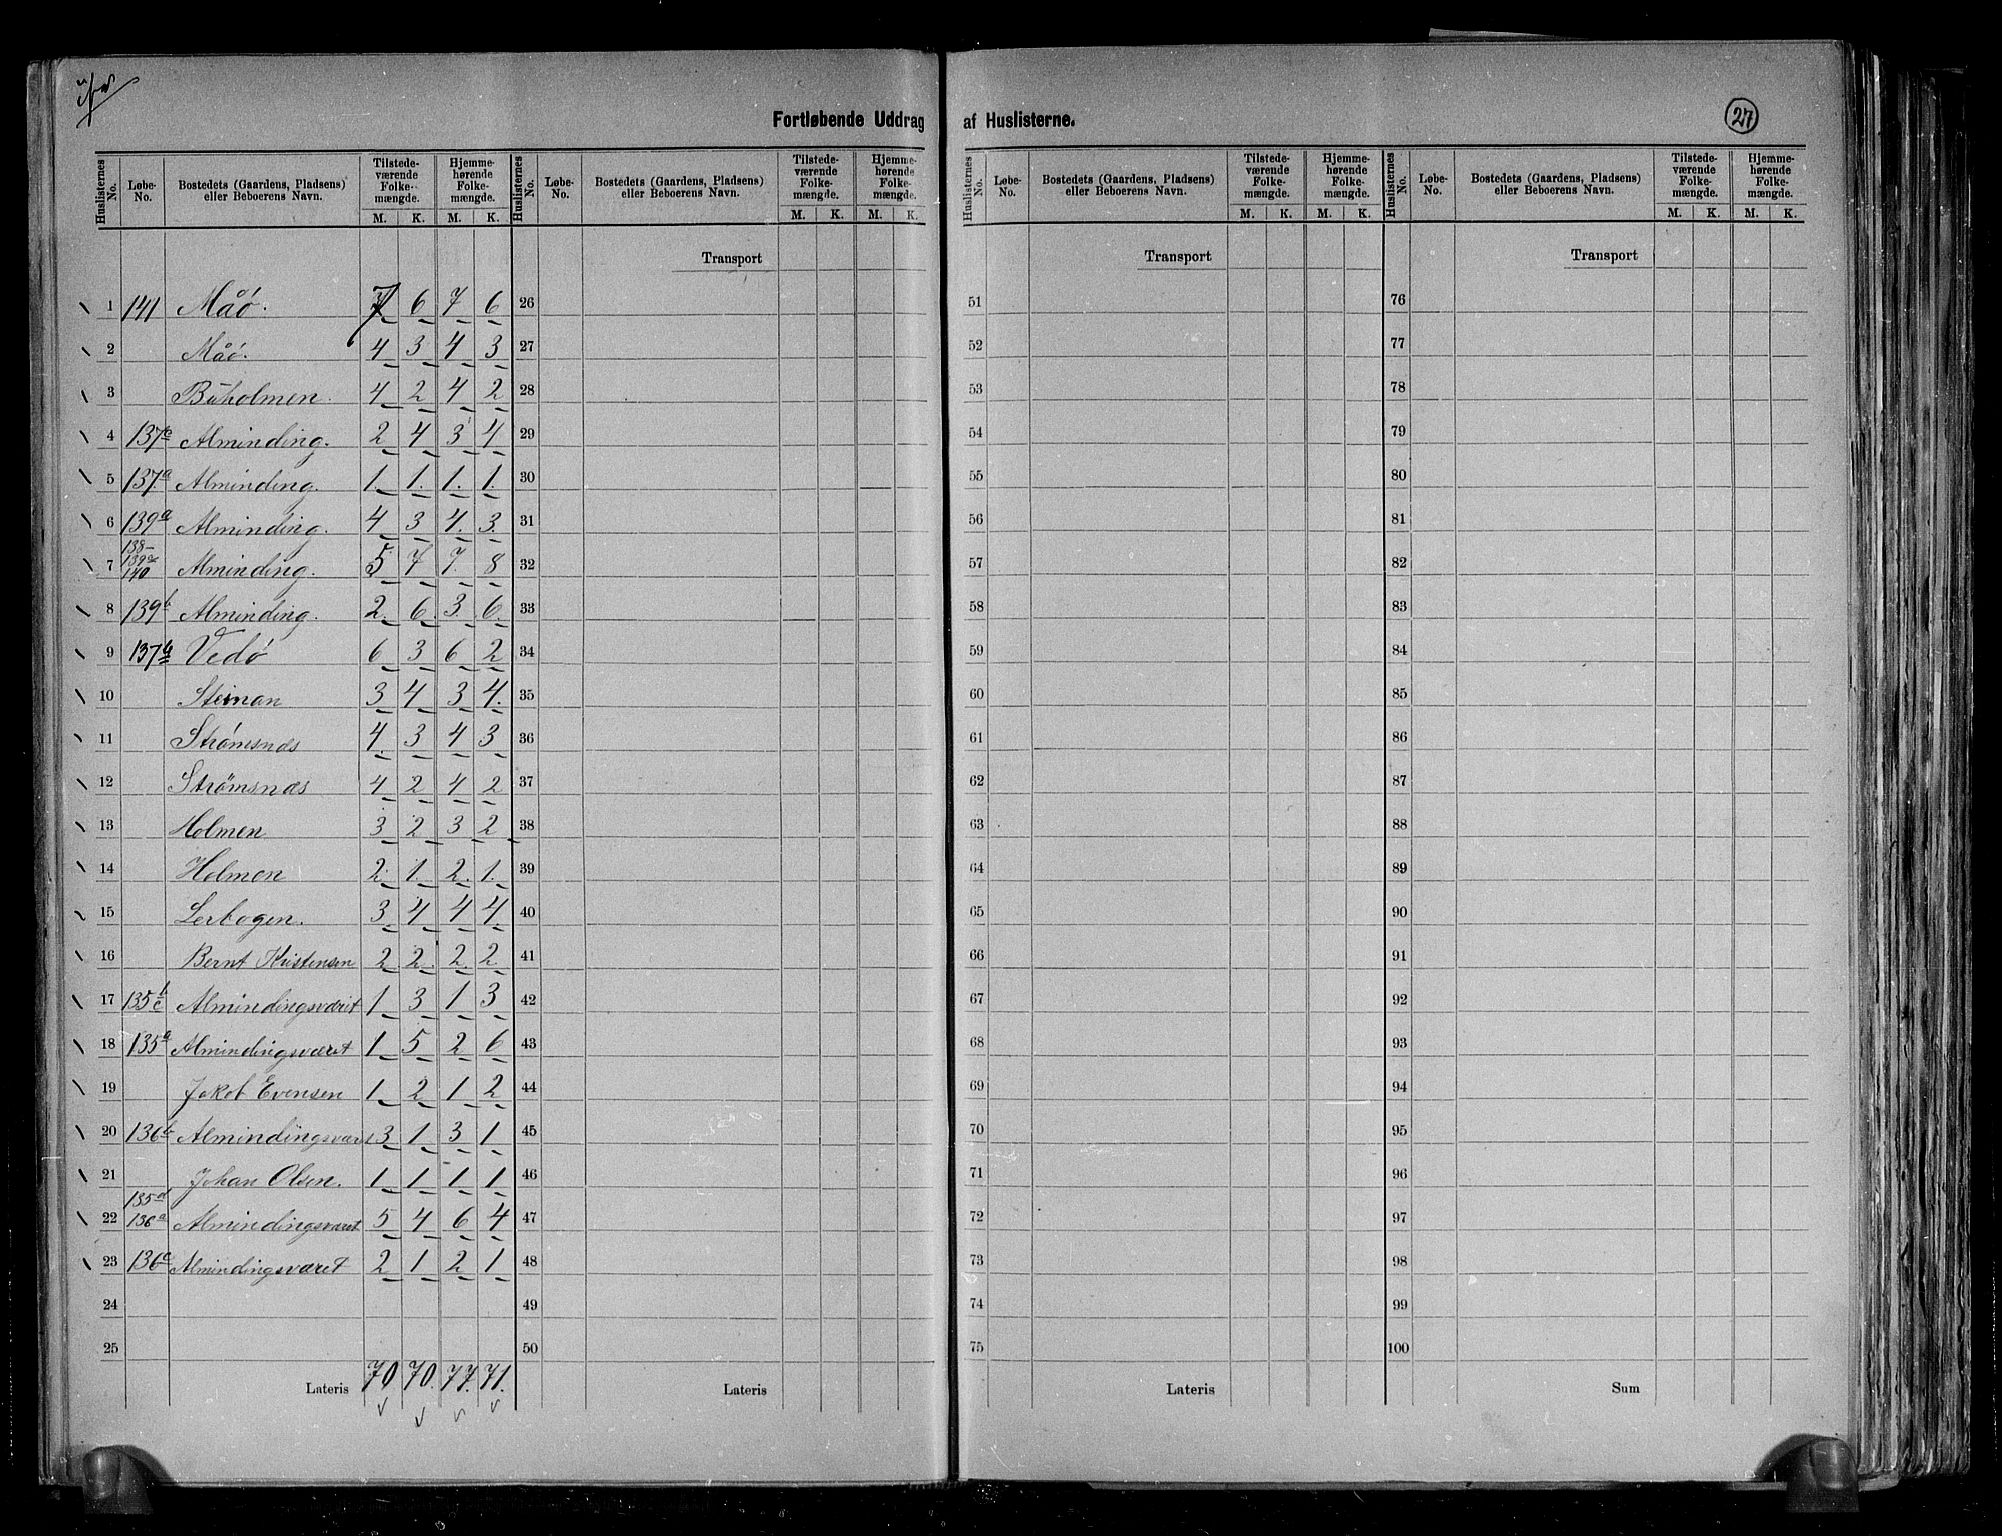 Fortløbende Uddrag af Huslisterne. 27
Huslisternes No. | Løbe-No. | Bostedets (Gaardens, Pladsens) eller Beboerens Navn. | Tilstedeværende Folkemængde. M. K. | Hjemmehørende Folkemængde. M. K.
1 141 Måø. 7 6 7 6
2 Måö. 4 3 4 3
3 Buholmen. 4 2 4 2
4 137c Alminding. 2 4 3 4
5 137a Alminding. 1. 1. 1. 1.
6 139a Alminding. 4 3 4. 3.
7 138- 139c 140 Alminding. 5 7 7. 8
8 139b Alminding. 2. 6. 3. 6.
9 137b Vedø 6 3 6 2
10 Steinan 3 4 3 4.
11 Strömsnæs 4. 3 4 3
12 Strømsnæs 4 2 4 2
13 Holmen 3 2 3 2
14 Holmen 2. 1. 2. 1.
15 Lerbogen. 3 4 4 4.
16 Bernt Kristensen 2 2. 2. 2
17 135 b c Almindingsværet 1 3 1 3
18 135a Almindingsværet 1 5 2 6
19 Jakob Evensen 1 2 1 2
20 136b Almindingsværet 3 1 3 1
21 Johan Olsen. 1 1 1 1
22 135d 136a Almindingsværet 5 4 6 4
23 136c Almindingsværet 2 1 2 1
24
25
Lateris 70 70. 77. 71.
Huslisternes No. | Løbe-No. | Bostedets (Gaardens, Pladsens) eller Beboerens Navn. | Tilstedeværende Folkemængde. M. K. | Hjemmehørende Folkemængde. M. K.
Transport
26
27
28
29
30
31
32
33
34
35
36
37
38
39
40
41
42
43
44
45
46
47
48
49
50
Lateris
Huslisternes No. | Løbe-No. | Bostedets (Gaardens, Pladsens) eller Beboerens Navn. | Tilstedeværende Folkemængde. M. K. | Hjemmehørende Folkemængde. M. K.
Transport
51
52
53
54
55
56
57
58
59
60
61
62
63
64
65
66
67
68
69
70
71
72
73
74
75
Lateris
Huslisternes No. | Løbe-No. | Bostedets (Gaardens, Pladsens) eller Beboerens Navn. | Tilstedeværende Folkemængde. M. K. | Hjemmehørende Folkemængde. M. K.
Transport
76
77
78
79
80
81
82
83
84
85
86
87
88
89
90
91
92
93
94
95
96
97
98
99
100
Sum